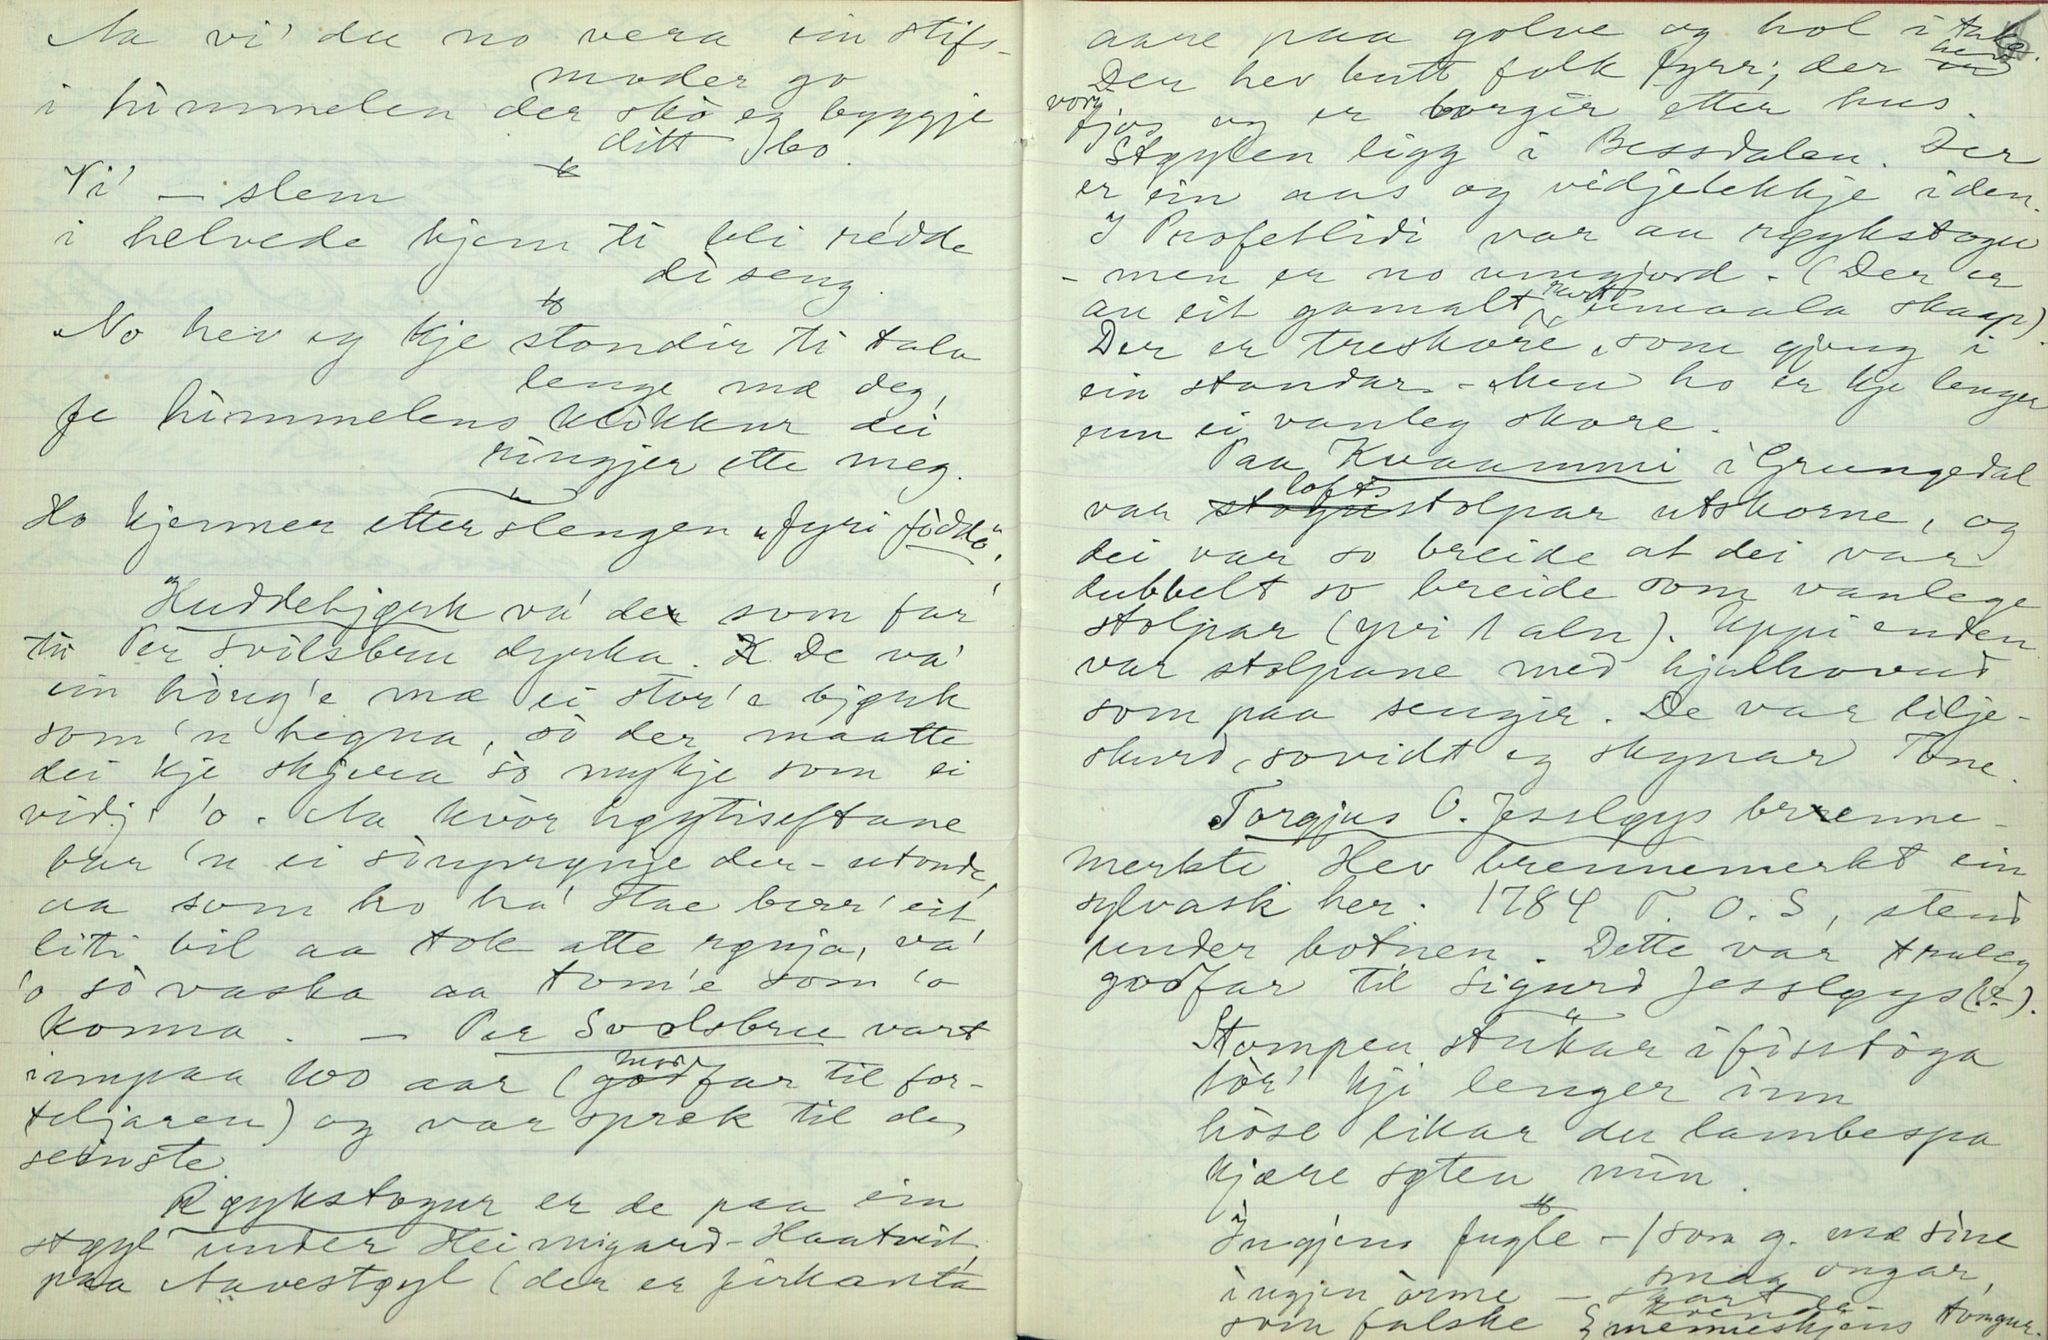 Aa vi' du no vera ein stifs-
moder go
i himmelen der sko eg byggje
ditt bo.
Vi' — slem
i helvede kjem ti bli redde
di seng.
No hev eg kje stondir ti tala
lenge mæ deg,
fe himmelens klokkur dei
ringjer ette meg.
Ho kjenner etter slengen "fyri födde".
Huddebjørk va' der som far
til Per Svilsbru dyrka. De va'
ein haug'e mæ ei stor'e bjørk
som 'n hegna, so der maatte
dei kje skjera so mykje som ei
vidj 'o. Aa kvor høgtiseftane
bar 'n ei som der utonde,
aa som ho ha' stae berr' eit
liti bil aa tok atte va'
'o so vaska aa tom'e som 'o
konna. — Per Svolsbru vart
innpaa 100 aar (godfar mor til for-
teljaren) og var sprek til de
seinste.
Røykstogur er de paa ein
støyl under Heimigard-Haatveit
paa Aavestøyl (der er firkanta
aare paa golve og hol i take.
Der hev butt folk fyrr; der er hev
vori fjos og er borgir etter hus.
Støylen ligg i Bessdalen. Der
er ein aas og vidjelekkje i den.
I Profetlidi var au røykstogu
- men er no umgjord. (Der er
au eit gamalt umaala skaap).
Der er treskore, som gjeng i
ein standar. - Men ho er kje lenger
enn ei vanleg skore.
Paa Kvaammi i Grungedal
var stogu lofts stolpar utskorne, og
dei var so breide at dei var
dubbelt so breide som vanlege
stolpar (yvi 1 aln). Uppi enden
var stolpane med hjulhovud
som paa sengir. De var lilje-
skurd, sovidt eg skynar Tone.
Torgjus O. Jessløys brenne-
merkte Hev brennemerkt ein
sylvask her. 1784 T. O. S, stend
under botnen. Dette var truleg
godfar til Sigurd Jessløys (?).
Stompen stukar i fistöga
tör' kji lenger inn
höse likar du lambespa
kjære søten min.
Ingjen fugle - (som g. mæ sine
smaa ongar,
ingjen orme - svart
som falske menneskjens tongur.